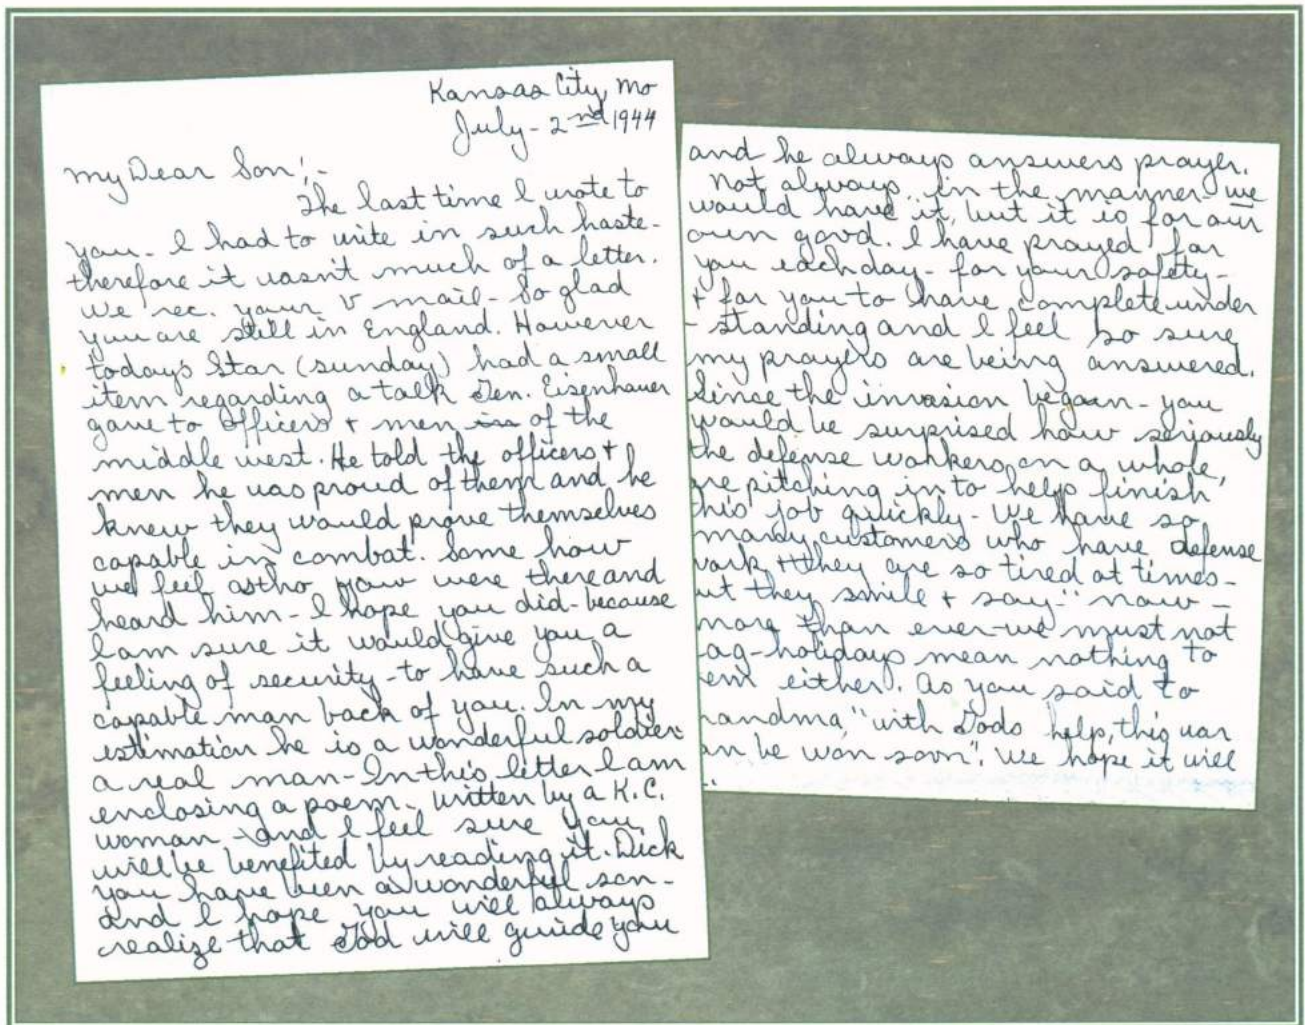 Kansas City, Mo
July - 2nd 1944
My Dear Son;-
The last time I wrote to
you - I had to write in such haste -
therefore it wasn't much of a letter.
We rec. your V mail - So glad
you are still in England. However
todays Star (sunday) had a small
item regarding a talk Gen. Eisenhauer
gave to officers + men in of the
middle west. He told the officers +
men he was proud of them and he
knew they would prove themselves
capable in combat. Some how
we feel as tho you were there and
heard him - I hope you did - because
I am sure it would give you a
feeling of security - to have such a
capable man back of you. In my
estimation he is a wonderful soldier
a real man - In this letter I am
enclosing a poem - written by a K.C.
woman - and I feel sure you
will be benefited by reading it. Dick
you have been a wonderful son -
and I hope you will always
realize that God will guide you
and he always answers prayer.
Not always in the manner we
would have it, but it is for our
own good. I have prayed for
you each day - for your safety -
+ for you to have complete under
- standing and I feel so sure
my prayers are being answered.
Since the invasion began - you
would be surprised how seriously
the defense workers on a whole,
are pitching in to help finish
this job quickly - We have so
many customers who have defense
work + they are so tired at times -
ut they smile + say - "now -
more than ever - we must not
lag - holidays mean nothing to
em either. As you said to
randma "with Gods help, this war
an be won soon". We hope it will